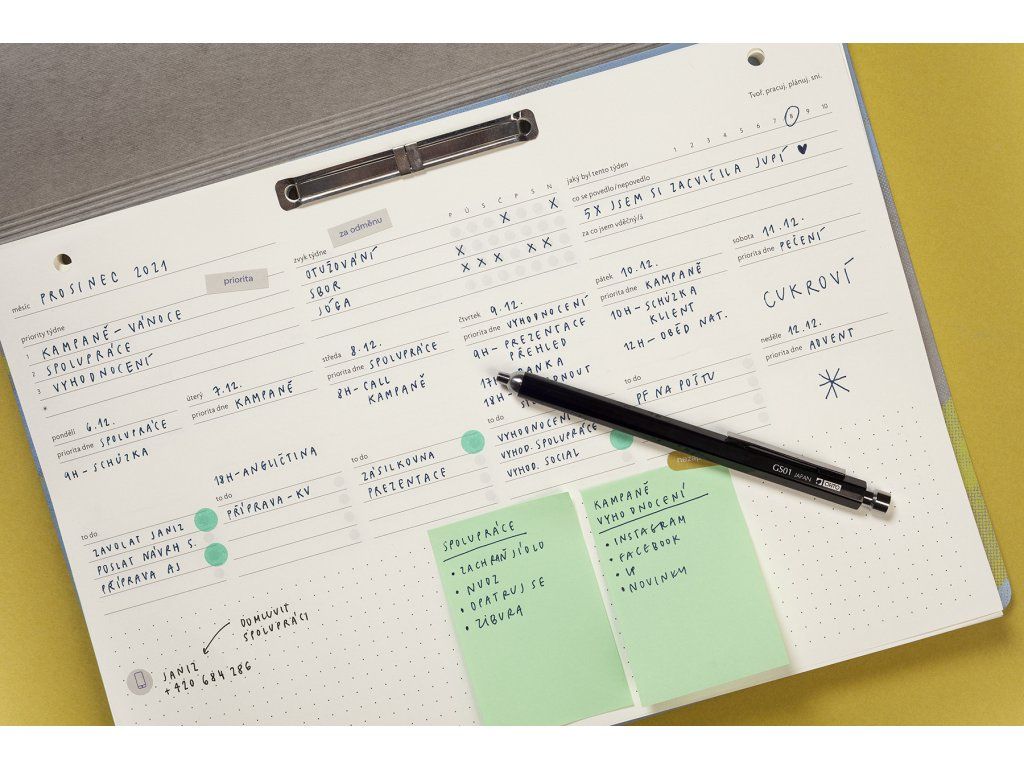 Tvoř, pracuj, plánuj, sni.
měsíc PROSINEC 2021
priorita
priority týdne
1 KAMPANĚ – VÁNOCE
2 SPOLUPRÁCE
3 VYHODNOCENÍ
za odměnu
zvyk týdne P Ú S Č P S N
OTUŽOVÁNÍ X X
SBOR X
JÓGA X X X X X
jaký byl tento týden 1 2 3 4 5 6 7 8 9 10
co se povedlo/nepovedlo
5X JSEM SI ZACVIČILA JUPÍ ♥
za co jsem vděčný/á
pondělí 6.12.
priorita dne SPOLUPRÁCE
9H – SCHŮZKA
to do
ZAVOLAT JANIZ
POSLAT NÁVRH S.
PŘÍPRAVA AJ
úterý 7.12.
priorita dne KAMPANĚ
18H – ANGLIČTINA
to do
PŘÍPRAVA – KV
středa 8.12.
priorita dne SPOLUPRÁCE
8H – CALL
KAMPANĚ
to do
ZÁSILKOVNA
PREZENTACE
čtvrtek 9.12.
priorita dne VYHODNOCENÍ
9H – PREZENTACE
PŘEHLED
17H BANKA
18H –
to do
VYHODNOCENÍ
VYHOD. SPOLUPRÁCE
VYHOD. SOCIAL
pátek 10.12.
priorita dne KAMPANĚ
10H – SCHŮZKA
KLIENT
12H – OBĚD NAT.
to do
PF NA POŠTU
sobota 11.12.
priorita dne PEČENÍ
CUKROVÍ
neděle 12.12.
priorita dne ADVENT
GS01 JAPAN OHTO
SPOLUPRÁCE
• ZACHRAŇ JÍDLO
• NVOZ
• OPATRUJ SE
• ZÍBURA
KAMPANĚ
VYHODNOCENÍ
• INSTAGRAM
• FACEBOOK
• LP
• NOVINKY
DOMLUVIT
SPOLUPRÁCI
JANIZ
+420 684 286